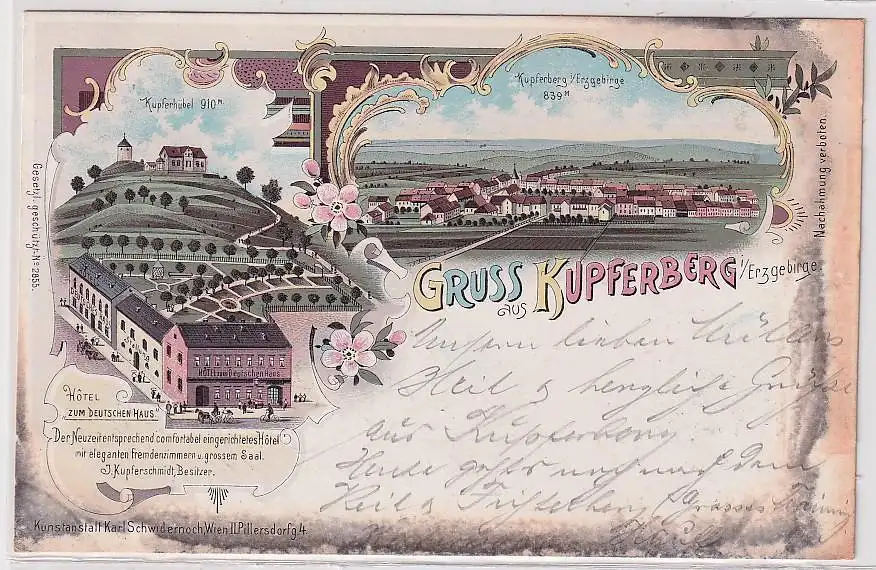 Kupferhübel 910 M
Kupferberg i/Erzgebirge
839 M
Gesetzl. geschützt No 2855.
Nachahmung verboten.
GRUSS AUS KUPFERBERG i/Erzgebirge.
HÔTEL ZUM DEUTSCHEN HAUS
HÔTEL
"ZUM DEUTSCHEN HAUS"
Der Neuzeit entsprechend comfortabel eingerichtetes Hôtel
mit eleganten Fremdenzimmern u. grossem Saal.
J. Kupferschmidt, Besitzer.
Kunstanstalt Karl Schwidernoch, Wien II. Pillersdorfg. 4.
Unsern lieben
Heil & herzliche Grüße
aus Kupferberg.
Heute geht's noch nach dem
Keil &